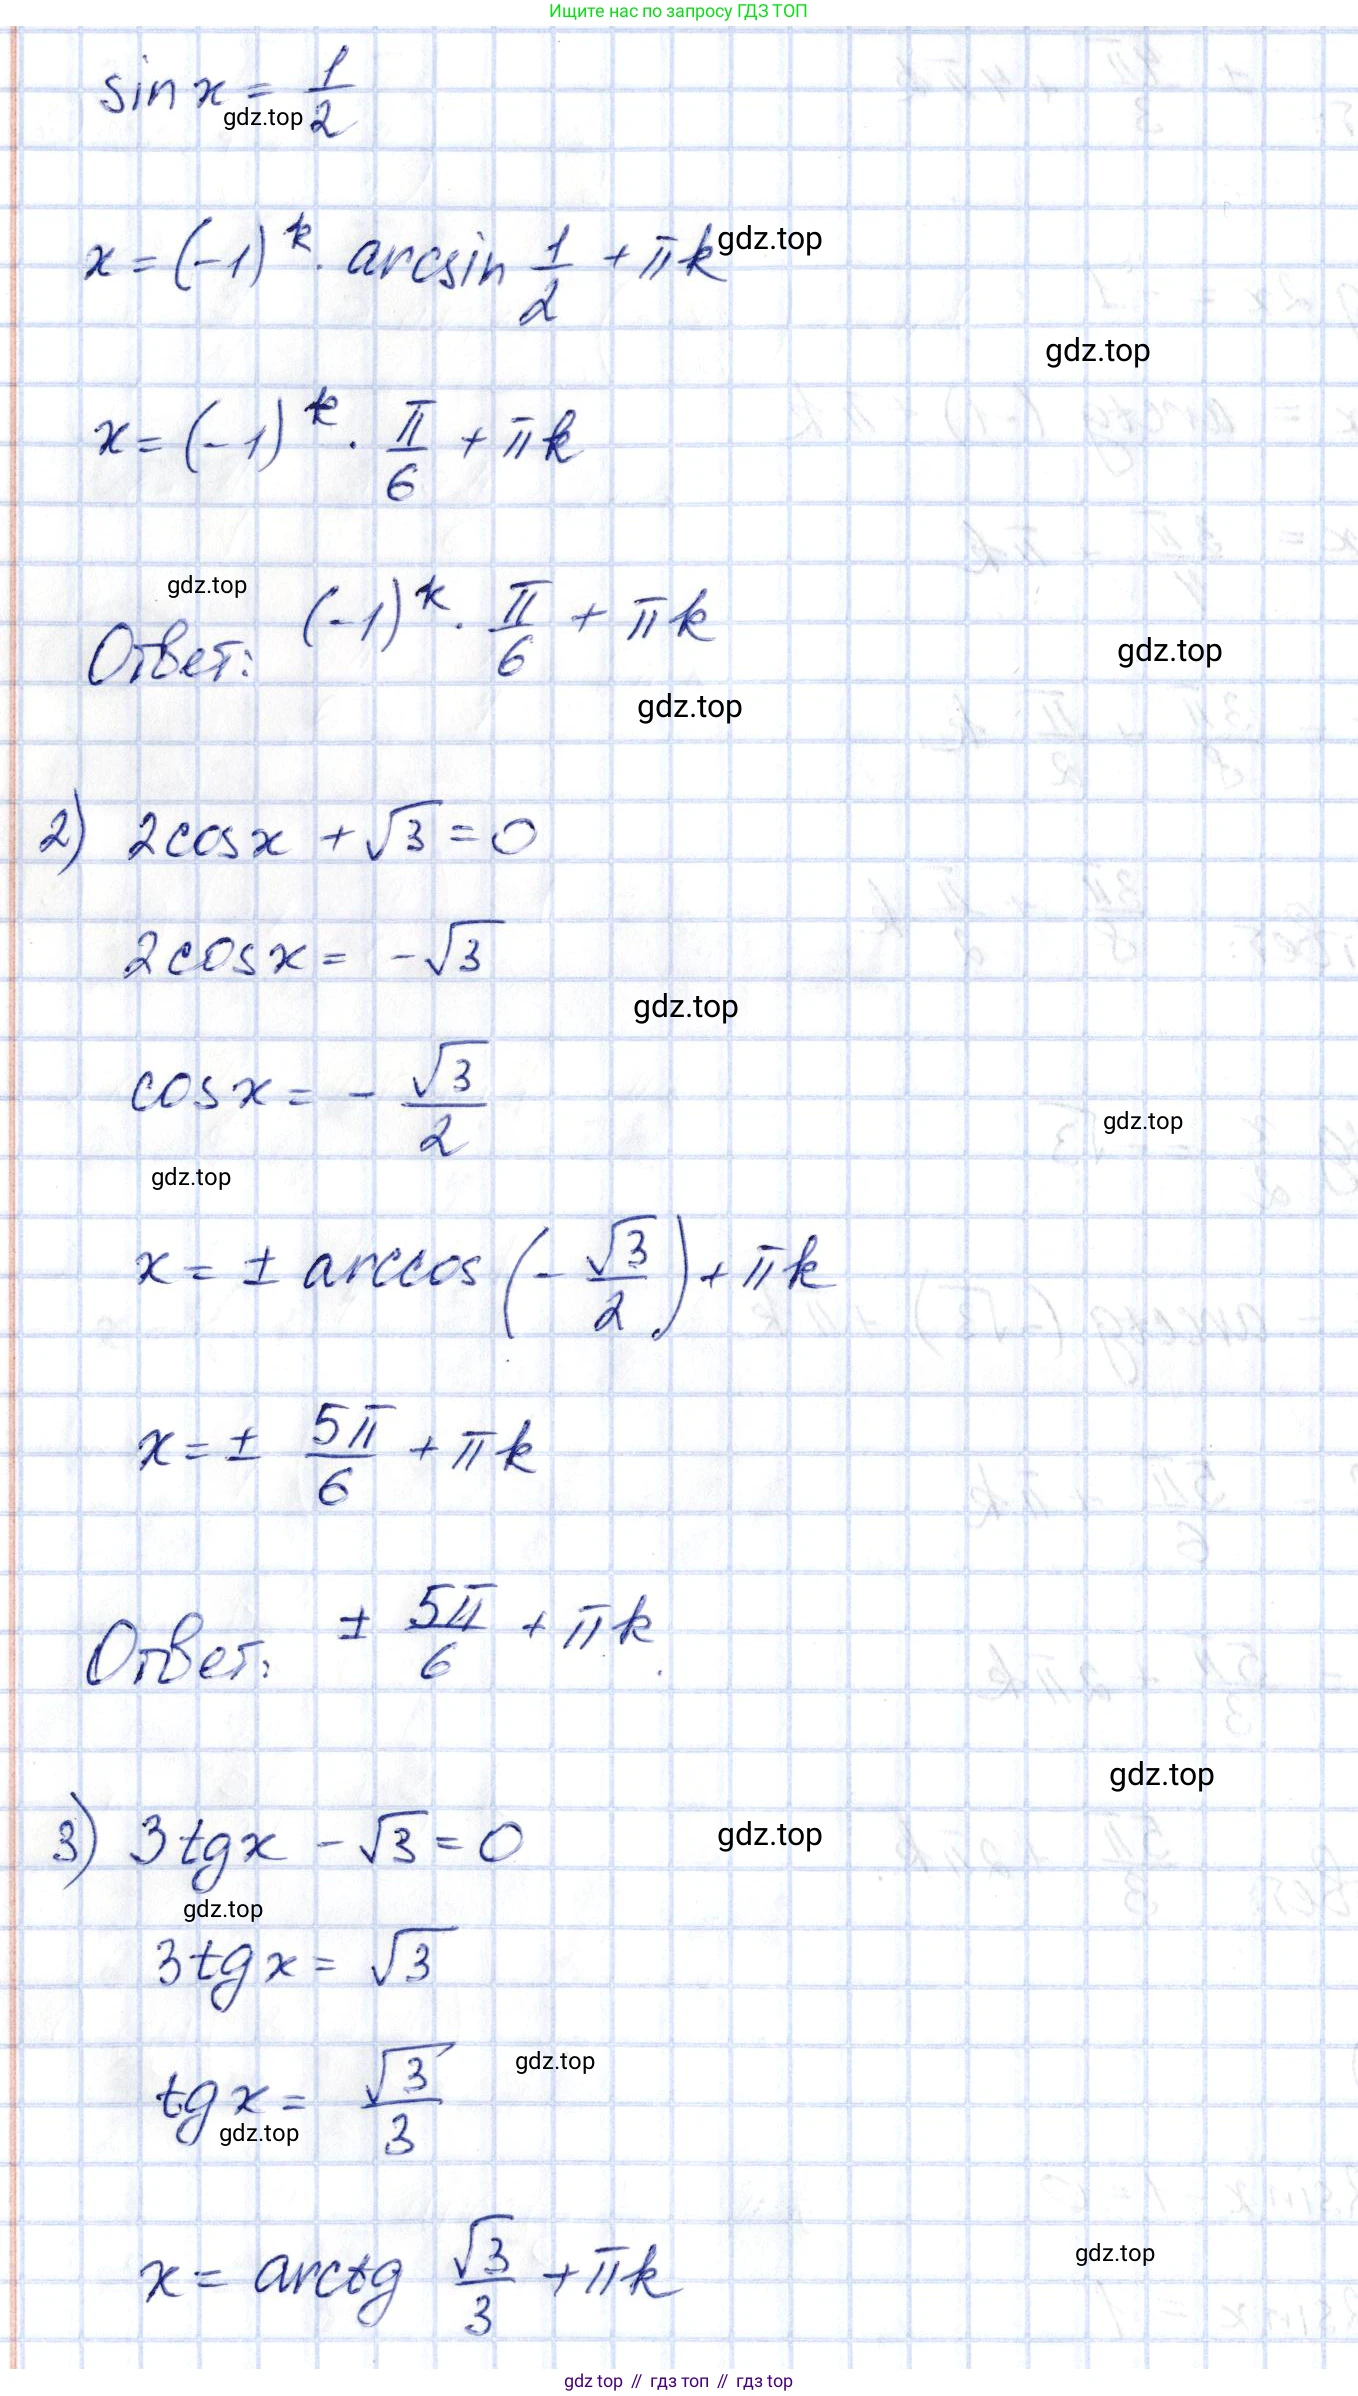 Ищите нас по запросу ГДЗ ТОП
sin x = 1/2
gdz.top
x = (-1)^k · arcsin 1/2 + πk
gdz.top
gdz.top
x = (-1)^k · π/6 + πk
gdz.top
Ответ: (-1)^k · π/6 + πk
gdz.top
gdz.top
2) 2cosx + √3 = 0
2cosx = -√3
gdz.top
cosx = - √3/2
gdz.top
gdz.top
x = ± arccos (- √3/2) + πk
x = ± 5π/6 + πk
Ответ: ± 5π/6 + πk.
gdz.top
3) 3tgx - √3 = 0
gdz.top
gdz.top
3tgx = √3
gdz.top
tgx = √3/3
gdz.top
gdz.top
x = arctg √3/3 + πk
gdz top // гдз топ // gdz top